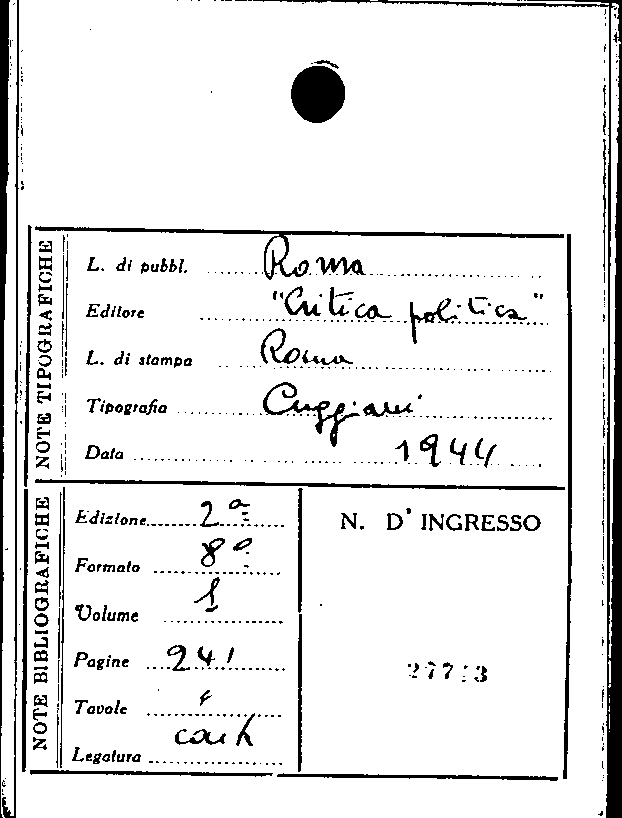 NOTE TIPOGRAFICHE
L. di pubbl. Roma
Editore "Critica politica"
L. di stampa Roma
Tipografia Cuggiani
Data 1944
NOTE BIBLIOGRAFICHE
Edizione 2ª
Formato 8º
Volume 1
Pagine 241
Tavole
Legatura
N. D'INGRESSO